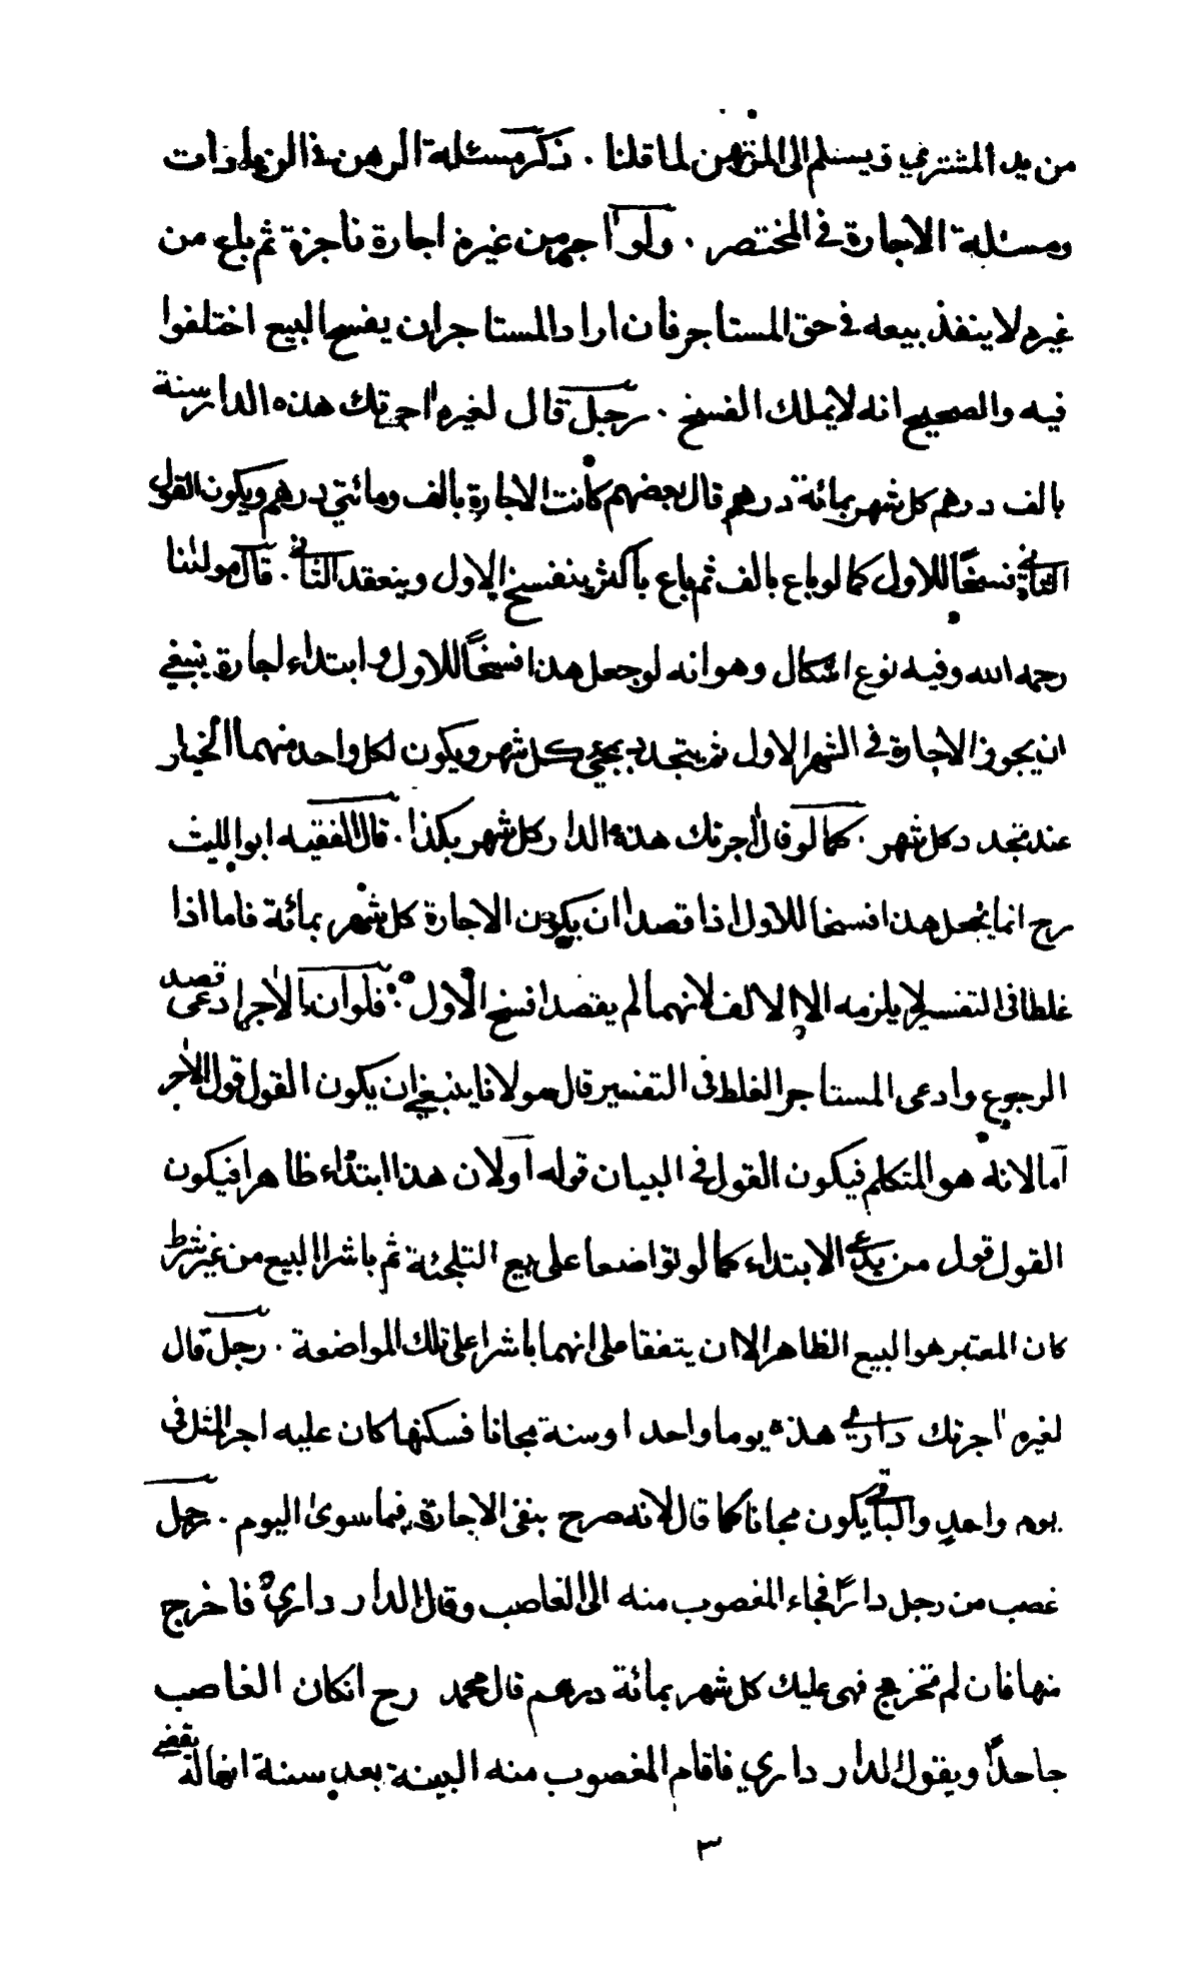 من يد المشتري ويسلم الى المرتهن لما قلنا . ذكر مسئلة الرهن في الزيادات
ومسئلة الاجارة في المختصر . ولو اجر من غيره اجارة ناجزة ثم باع من
غيره لا ينفذ بيعه في حق المستاجر فان اراد المستاجر ان يفسخ البيع اختلفوا
فيه والصحيح انه لا يملك الفسخ . رجل قال لغيره اجرتك هذه الدار سنة
بالف درهم كل شهر بمائة درهم قال بعضهم كانت الاجارة بالف ومائتي درهم ويكون القول
الثاني فسخًا للاول كما لو باع بالف ثم باع باكثر ينفسخ الاول وينعقد الثاني . قال مولٰنا
رحمه الله وفيه نوع اشكال وهو انه لو جعل هذا فسخًا للاول وابتداء اجارة ينبغي
ان يجوز الاجارة في الشهر الاول ثم يتجدد بمجيء كل شهر ويكون لكل واحد منهما الخيار
عند تجدد كل شهر . كما لو قال اجرتك هذه الدار كل شهر بكذا . قال الفقيه ابو الليث
رح انما يجعل هذا فسخا للاول اذا قصدا ان يكون الاجارة كل شهر بمائة فاما اذا
غلطا في التفسير لا يلزمه الا الالف لانهما لم يقصدا فسخ الاول ؞ فلو ان الاٰجر ادعى قصد
الرجوع وادعى المستاجر الغلط في التفسير قال مولانا ينبغي ان يكون القول قول الاٰجر
اما لانه هو المتكلم فيكون القول في البيان قوله اولان هذا ابتداء ظاهرا فيكون
القول قول من يدعي الابتداء كما لو تواضعا على بيع التلجئة ثم باشرا البيع من غير شرط
كان المعتبر هو البيع الظاهر الا ان يتفقا على انهما باشرا على تلك المواضعة . رجل قال
لغيره اٰجرتك داري هذه يوما واحدا وسنة مجانا فسكنها كان عليه اجر المثل في
يوم واحدٍ والباقي يكون مجانا كما قال لانه صرح بنفي الاجارة فيما سوى اليوم . رجل
غصب من رجل دارًا فجاء المغصوب منه الى الغاصب وقال الدار داري فاخرج
منها فان لم تخرج فهى عليك كل شهر بمائة درهم قال محمد رح انكان الغاصب
جاحدًا ويقول الدار داري فاقام المغصوب منه البينة بعد سنة انها له يقضى
٣